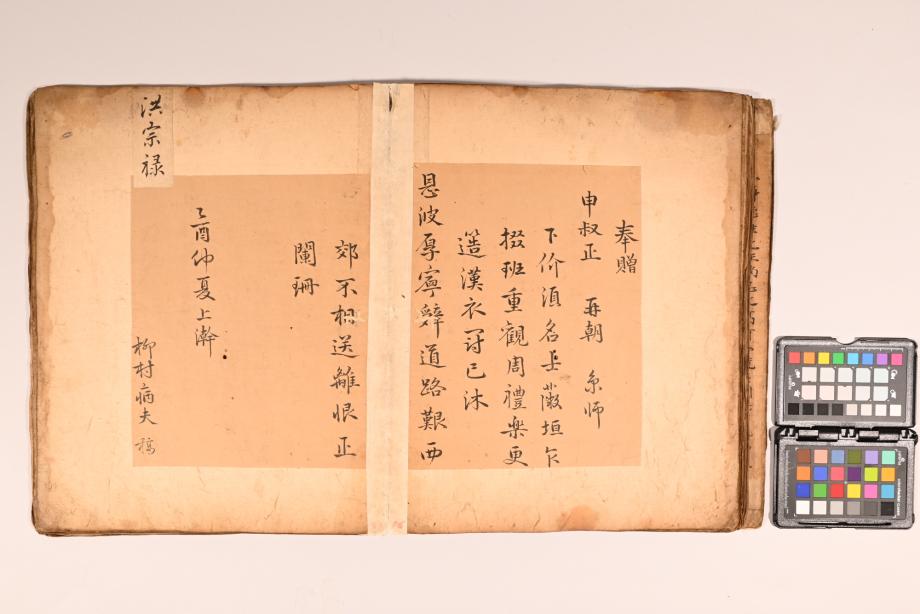 奉贈
申叔正 再朝 京師
下价須名長薇垣乍
掇班重觀周禮樂更
簉漢衣冠已沐
恩波厚寧辭道路艱西
郊不相送離恨正
闌珊
乙酉仲夏上澣
柳村病夫 稿
洪宗祿